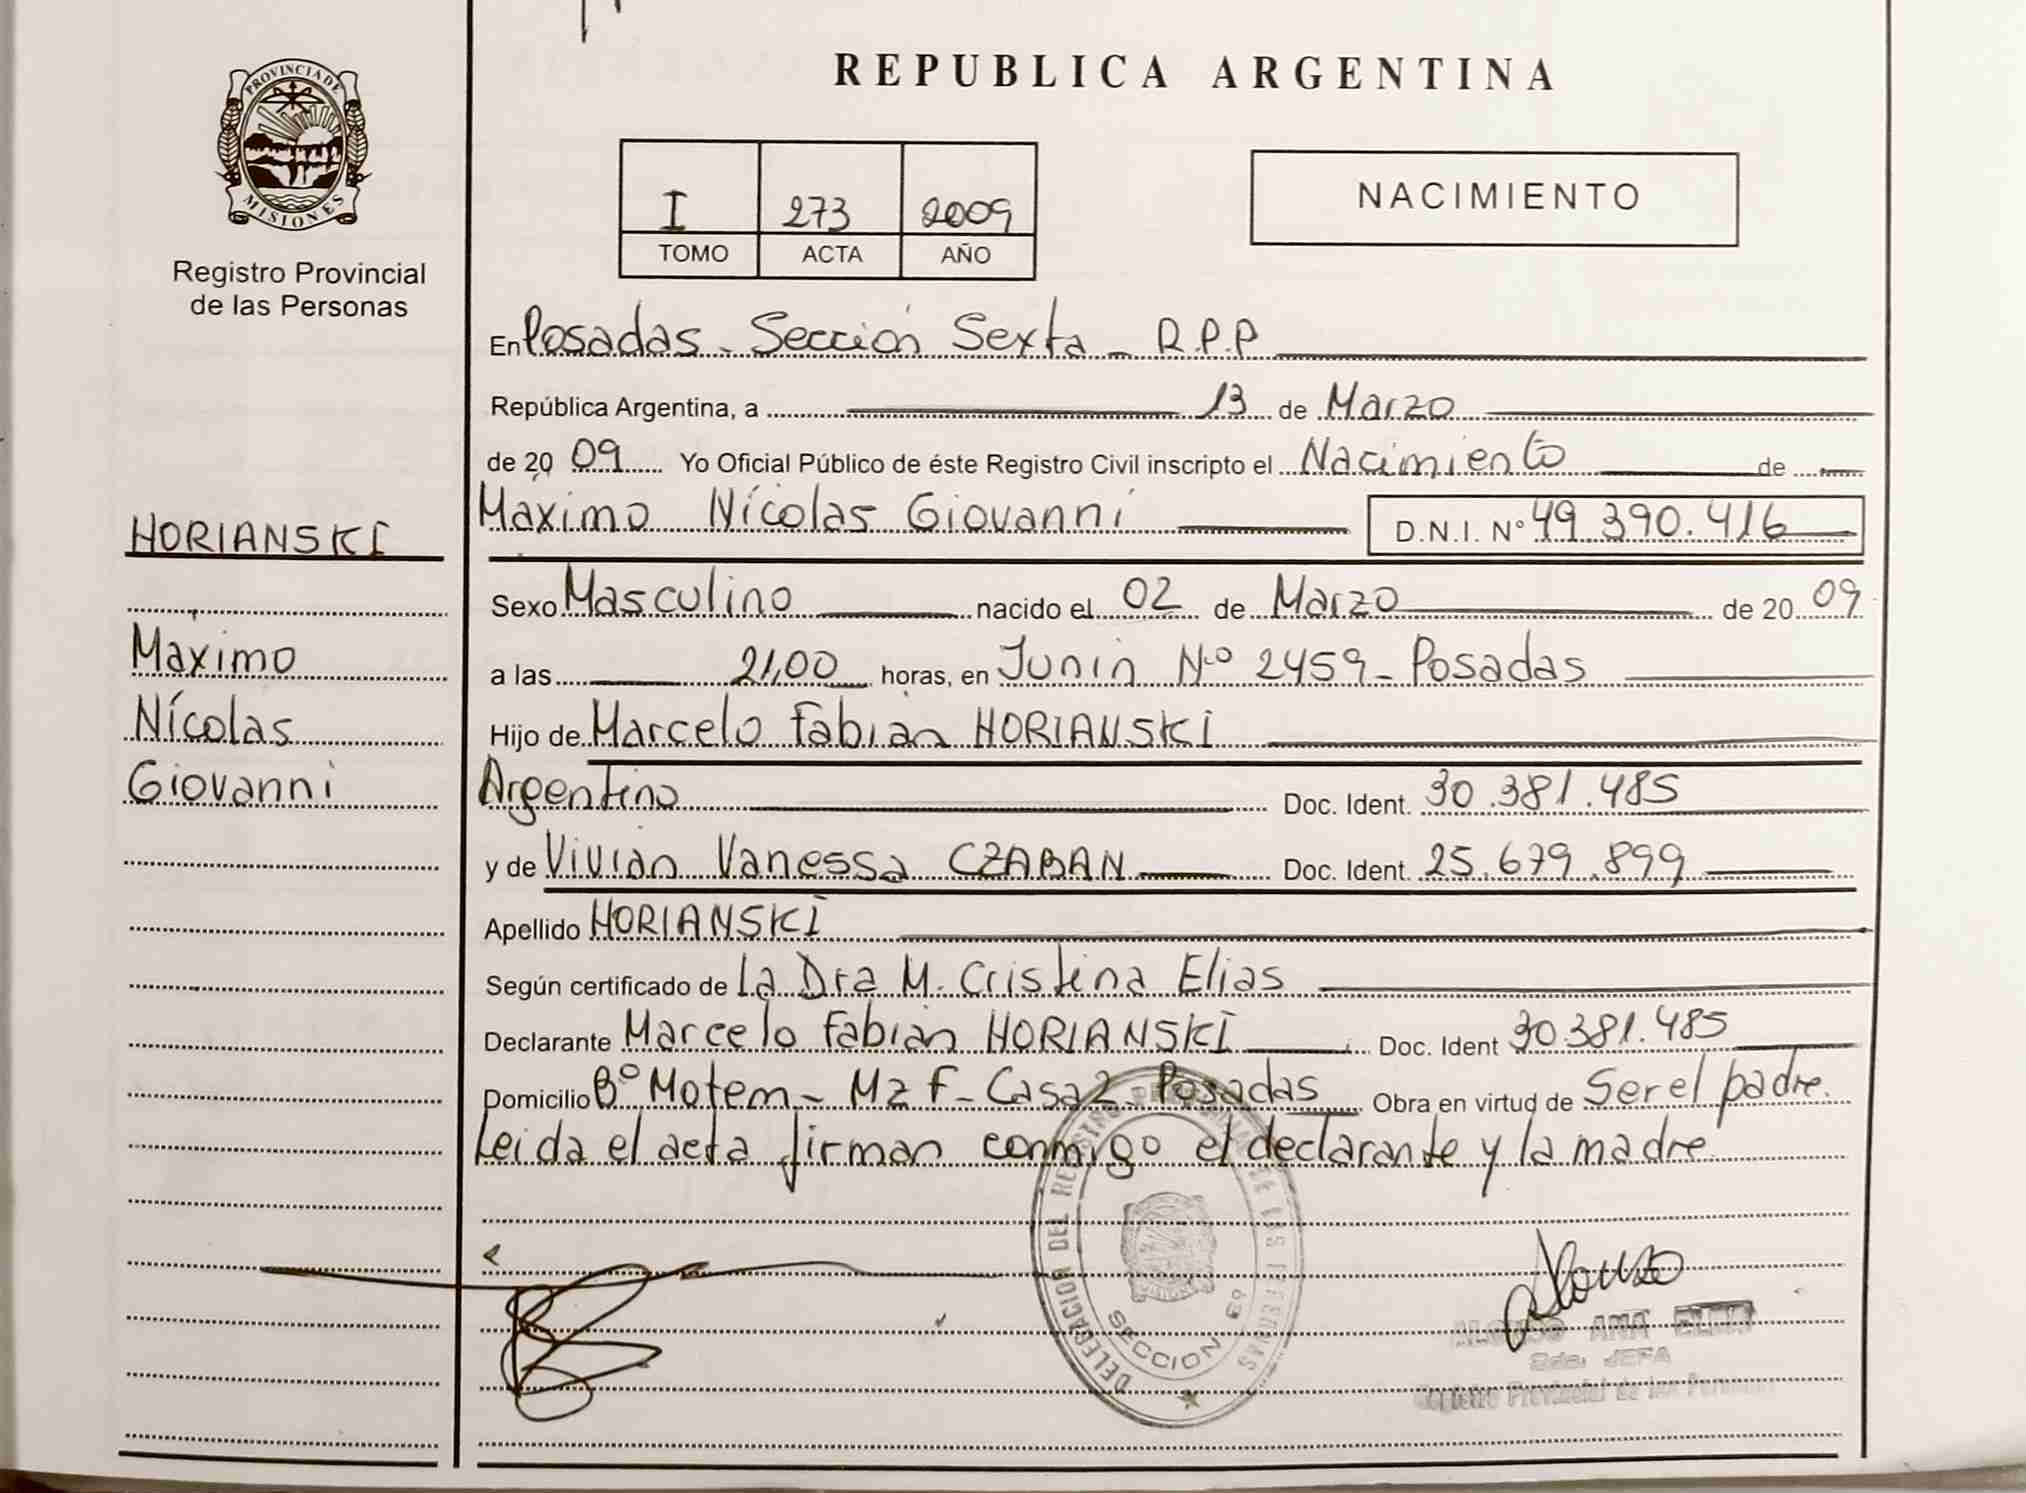 REPUBLICA ARGENTINA
PROVINCIA DE
MISIONES
Registro Provincial
de las Personas
I 273 2009
TOMO ACTA AÑO
NACIMIENTO
En Posadas - Sección Sexta - R.P.P
República Argentina, a 13 de Marzo
de 20 09 Yo Oficial Público de éste Registro Civil inscripto el Nacimiento de
HORIANSKI
Maximo Nícolas Giovanni D.N.I. Nº 49.390.416
Sexo Masculino nacido el 02 de Marzo de 20 09
Maximo
a las 21,00 horas, en Junin Nº 2459 - Posadas
Nícolas
Hijo de Marcelo Fabian HORIANSKI
Giovanni
Argentino Doc. Ident. 30.381.485
y de Vivian Vanessa CZABAN Doc. Ident. 25.679.899
Apellido HORIANSKI
Según certificado de La Dra M. Cristina Elias
Declarante Marcelo Fabian HORIANSKI Doc. Ident 30.381.485
Domicilio Bº Motem - Mz F - Casa 2 - Posadas Obra en virtud de Ser el padre.
Leida el acta firman conmigo el declarante y la madre
DELEGACION DEL REGISTRO PROVINCIAL DE LAS PERSONAS
SECCION 6ª
Alonso
ALONSO ANA
2da. JEFA
Registro Provincial de las Personas